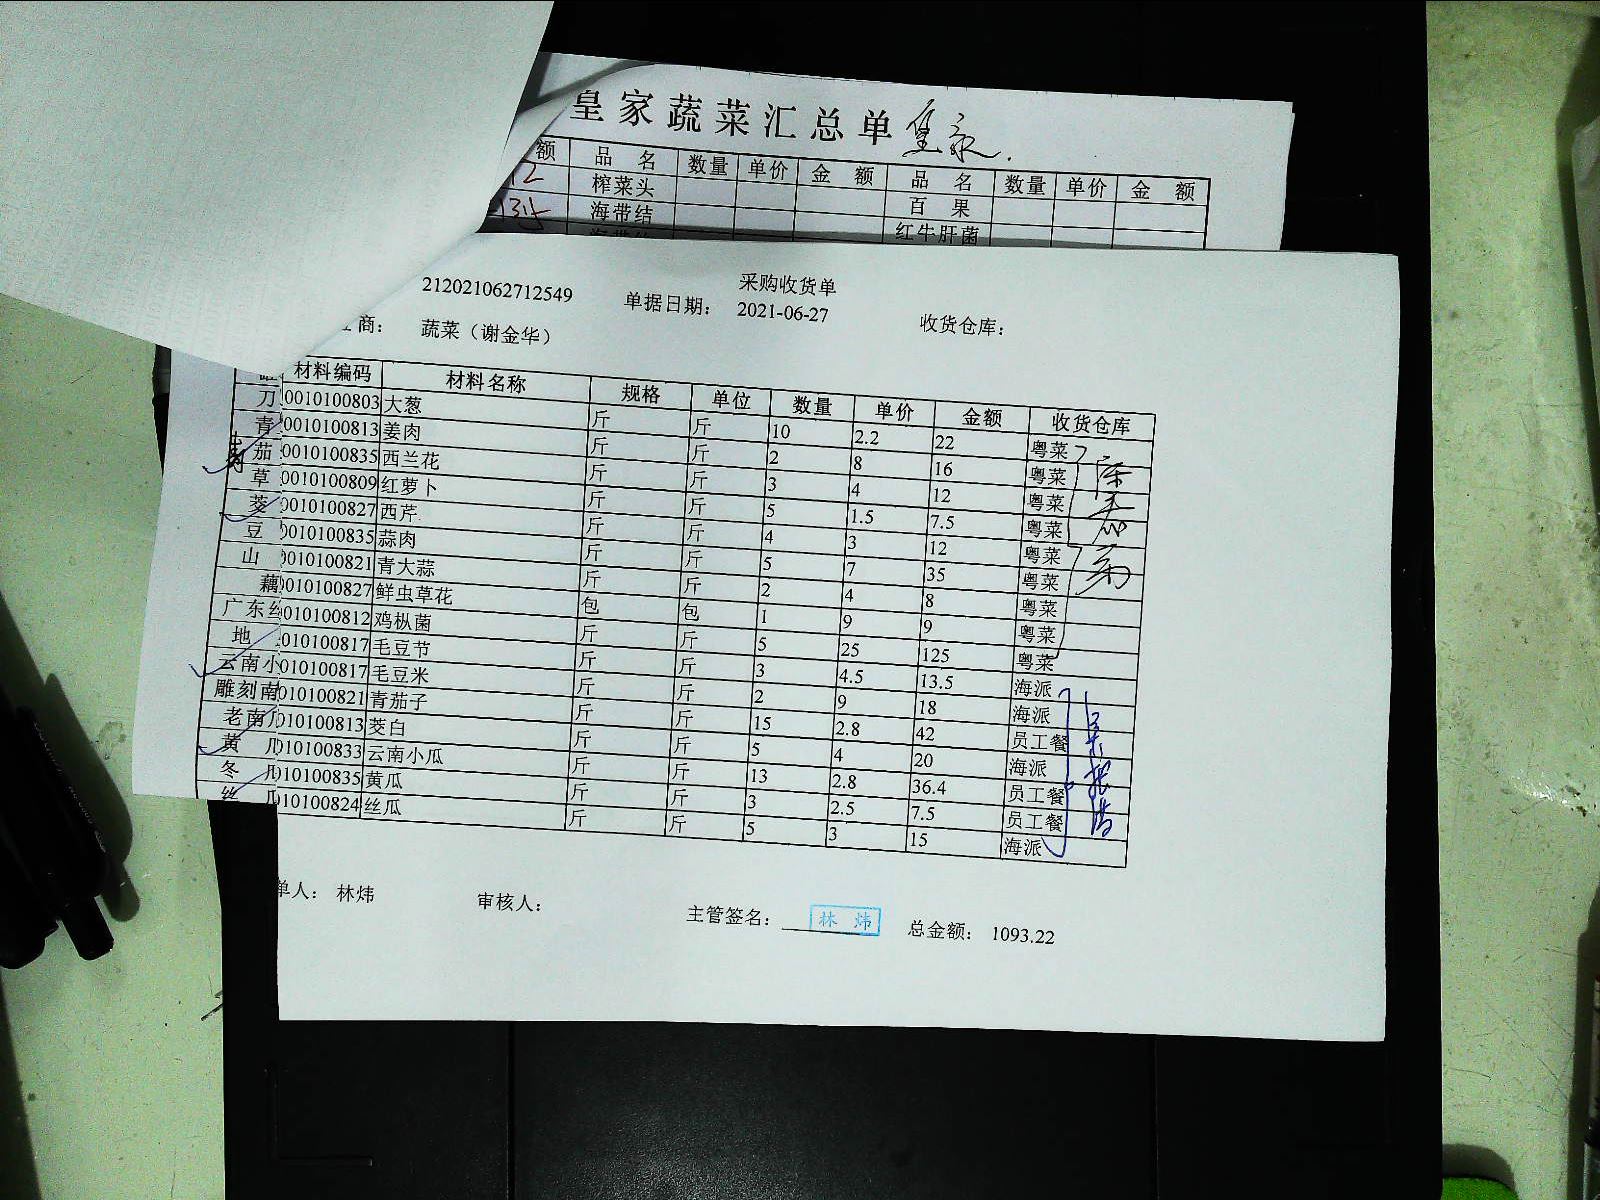 皇家蔬菜汇总单
额 品 名 数量 单价 金 额 品 名 数量 单价 金 额
12 榨菜头 百 果
海带结 红牛肝菌
采购收货单
212021062712549 单据日期： 2021-06-27 收货仓库：
商： 蔬菜（谢金华）
材料编码 材料名称 规格 单位 数量 单价 金额 收货仓库
刀 0010100803 大葱 斤 斤 10 2.2 22 粤菜
青 0010100813 姜肉 斤 斤 2 8 16 粤菜
茄 0010100835 西兰花 斤 斤 3 4 12 粤菜
草 0010100809 红萝卜 斤 斤 5 1.5 7.5 粤菜
茭 0010100827 西芹 斤 斤 4 3 12 粤菜
豆 0010100835 蒜肉 斤 斤 5 7 35 粤菜
山 0010100821 青大蒜 斤 斤 2 4 8 粤菜
藕 010100827 鲜虫草花 包 包 1 9 9 粤菜
广东 010100812 鸡枞菌 斤 斤 5 25 125 粤菜
地 010100817 毛豆节 斤 斤 3 4.5 13.5 海派
云南小 010100817 毛豆米 斤 斤 2 9 18 海派
雕刻南 010100821 青茄子 斤 斤 15 2.8 42 员工餐
老南 010100813 茭白 斤 斤 5 4 20 海派
黄 瓜 10100833 云南小瓜 斤 斤 13 2.8 36.4 员工餐
冬 瓜 10100835 黄瓜 斤 斤 3 2.5 7.5 员工餐
丝 瓜 10100824 丝瓜 斤 斤 5 3 15 海派
单人： 林炜 审核人： 主管签名： 林 炜 总金额： 1093.22